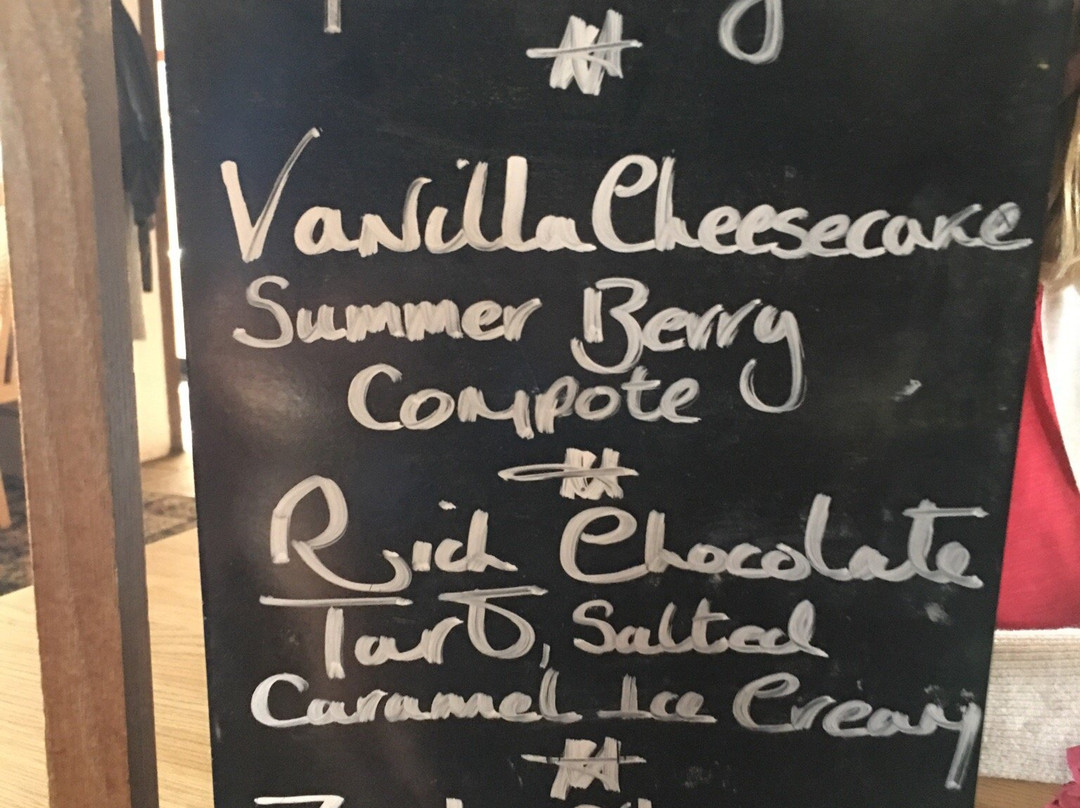 Vanilla Cheesecake
Summer Berry
Compote
Rich Chocolate
Tart, Salted
Caramel Ice Cream